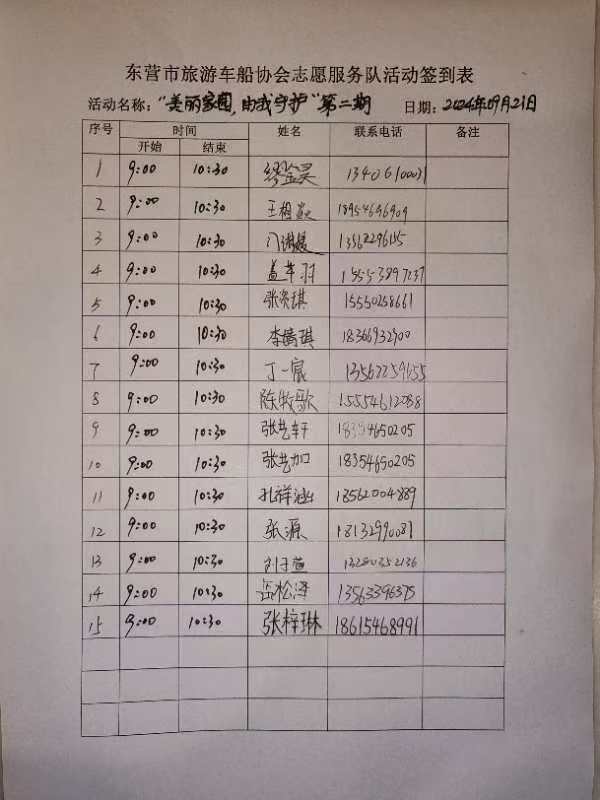 东营市旅游车船协会志愿服务队活动签到表
活动名称：“美丽家园，由我守护”第二期 日期：2024年09月21日
序号 时间 姓名 联系电话 备注
开始 结束
1 9:00 10:30 缪金昊
2 9:00 10:30 王相焱 18954696909
3 9:00 10:30 13562296155
4 9:00 10:30 盖苹羽 15553897237
5 9:00 10:30 张奕琪 15550258661
6 9:00 10:30 李崎琪 18366932900
7 9:00 10:30 丁一宸 13562259655
8 9:00 10:30 陈牧歌 15554612088
9 9:00 10:30 张艺轩 18354650205
10 9:00 10:30 张艺加 18354650205
11 9:00 10:30 孔祥涵 18562004889
12 9:00 10:30 张源
13 9:00 10:30 刘子萱 13280352136
14 9:00 10:30 岳松泽 13563396375
15 9:00 10:30 张梓琳 18615468991